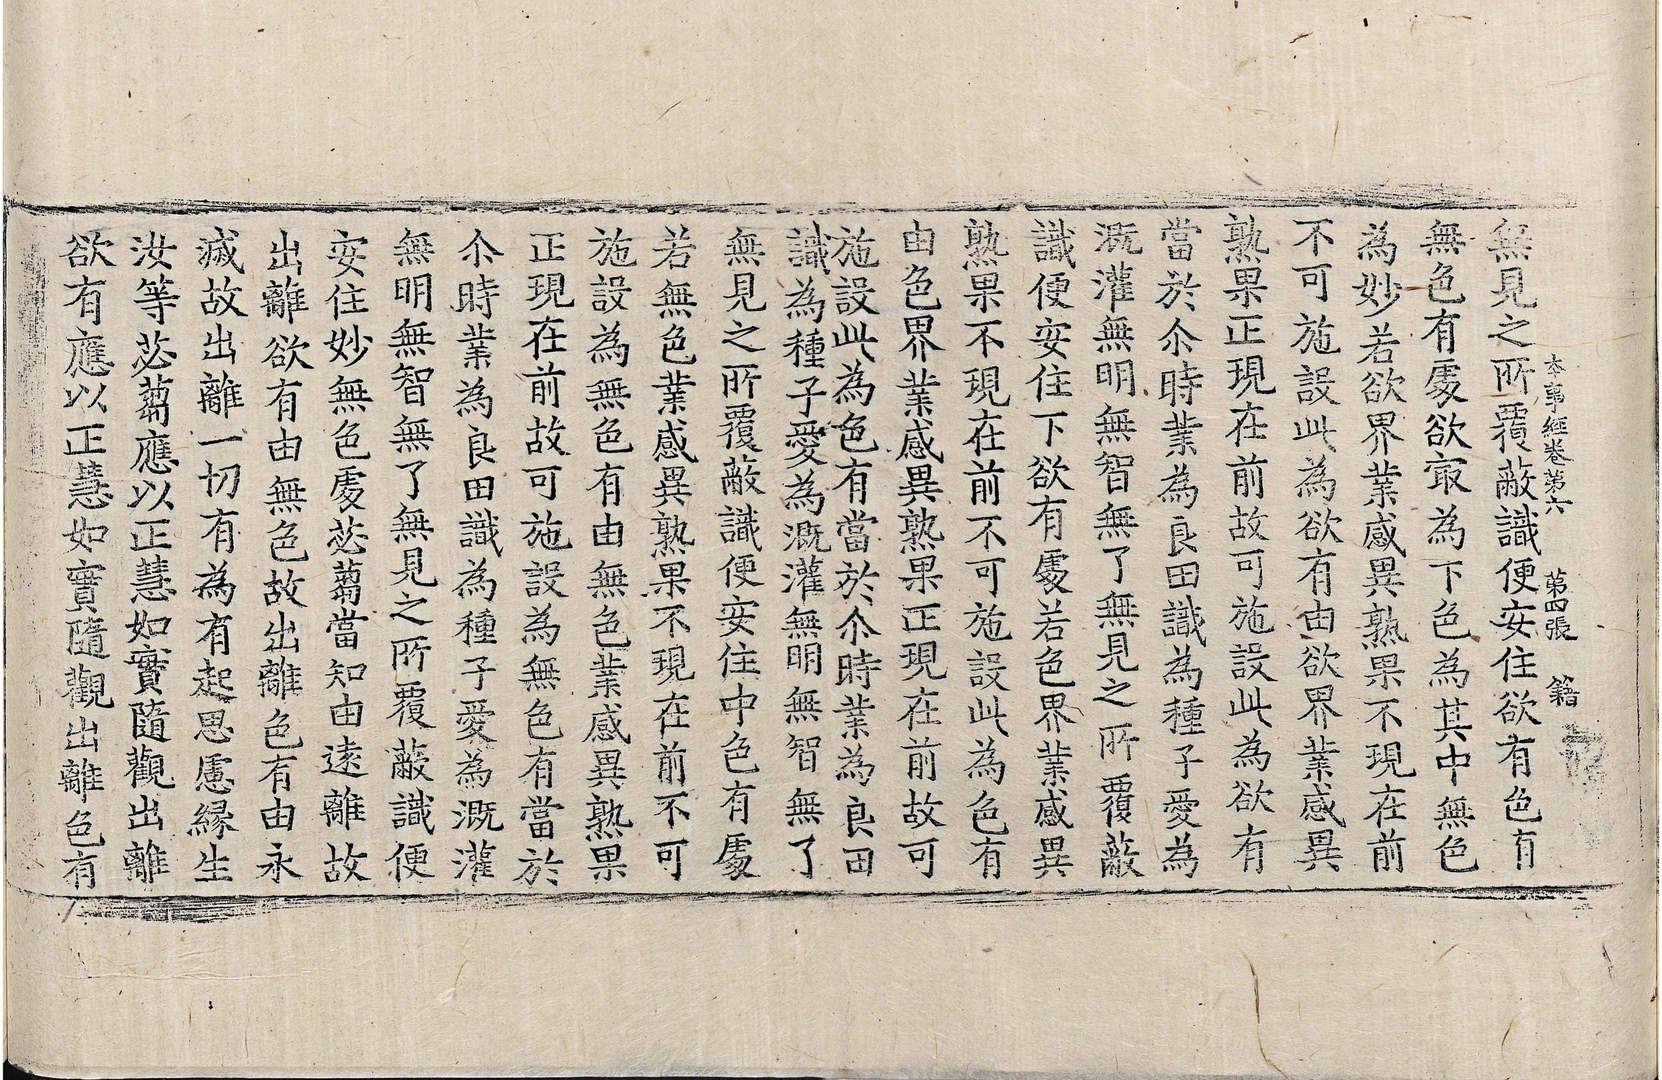 本事經卷第六 第四張 籍
無見之所覆蔽識便安住欲有色有
無色有處欲㝡為下色為其中無色
為妙若欲界業感異熟果不現在前
不可施設此為欲有由欲界業感異
熟果正現在前故可施設此為欲有
當於尒時業為良田識為種子愛為
溉灌無明無智無了無見之所覆蔽
識便安住下欲有處若色界業感異
熟果不現在前不可施設此為色有
由色界業感異熟果正現在前故可
施設此為色有當於尒時業為良田
識為種子愛為溉灌無明無智無了
無見之所覆蔽識便安住中色有處
若無色業感異熟果不現在前不可
施設為無色有由無色業感異熟果
正現在前故可施設為無色有當於
尒時業為良田識為種子愛為溉灌
無明無智無了無見之所覆蔽識便
安住妙無色處苾蒭當知由遠離故
出離欲有由無色故出離色有由永
滅故出離一切有為有起思慮緣生
汝等苾蒭應以正慧如實隨觀出離
欲有應以正慧如實隨觀出離色有